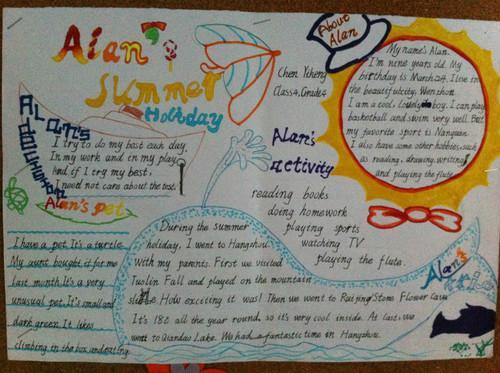 Alan's
Summer
Holiday
Chen Yiheng
Class4, Grade4
About
Alan
My name's Alan.
I'm nine years old. My
birthday is March 24. I live in
the beautiful city: Wenzhou.
I am a cool, lovely boy. I can play
basketball and swim very well. But
my favorite sport is Nanquan.
I also have some other hobbies, such
as reading, drawing, writing
and playing the flute.
Alan's
I try to do my best each day,
In my work and in my play,
And if I try my best,
I need not care about the test.
Alan's
activity
reading books
doing homework
playing sports
watching TV
playing the flute.
Alan's pet
I have a pet. It's a turtle.
My aunt bought it for me
last month. It's a very
unusual pet. It's small and
dark green. It likes
climbing in the box and eating
Alan's
During the summer
holiday, I went to Hangzhou
with my parents. First we visited
Tuolin Fall and played on the mountain
slide. How exciting it was! Then we went to Ruijing Stone Flower Cave
It's 18℃ all the year round, so it's very cool inside. At last, we
went to Qiandao Lake. We had a fantastic time in Hangzhou.